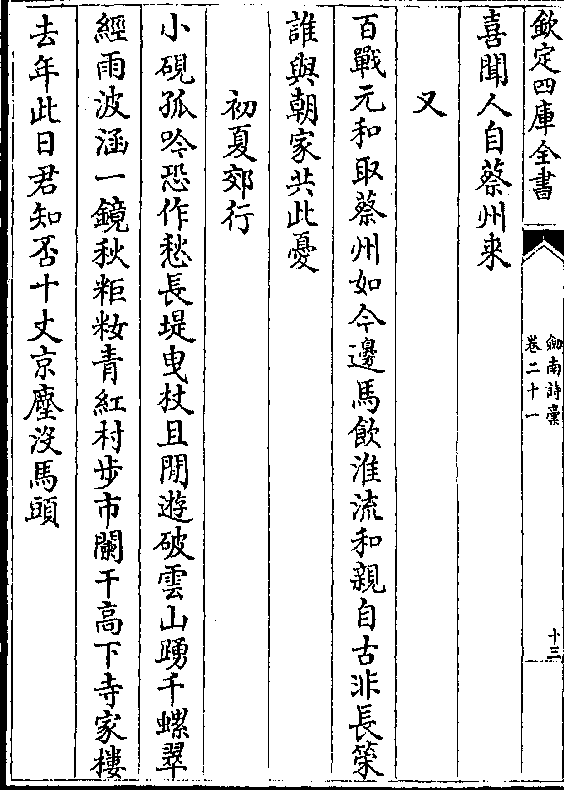 欽定四庫全書
劍南詩稾
卷二十一
十三
喜聞人自蔡州来
又
百戰元和取蔡州如今邊馬飲淮流和親自古非長䇿
誰與朝家共此憂
初夏郊行
小硯孤吟恐作愁長堤曳杖且閒遊破雲山踴千螺翠
經雨波涵一鏡秋粔籹青紅村步市闌干高下寺家樓
去年此日君知否十丈京塵沒馬頭